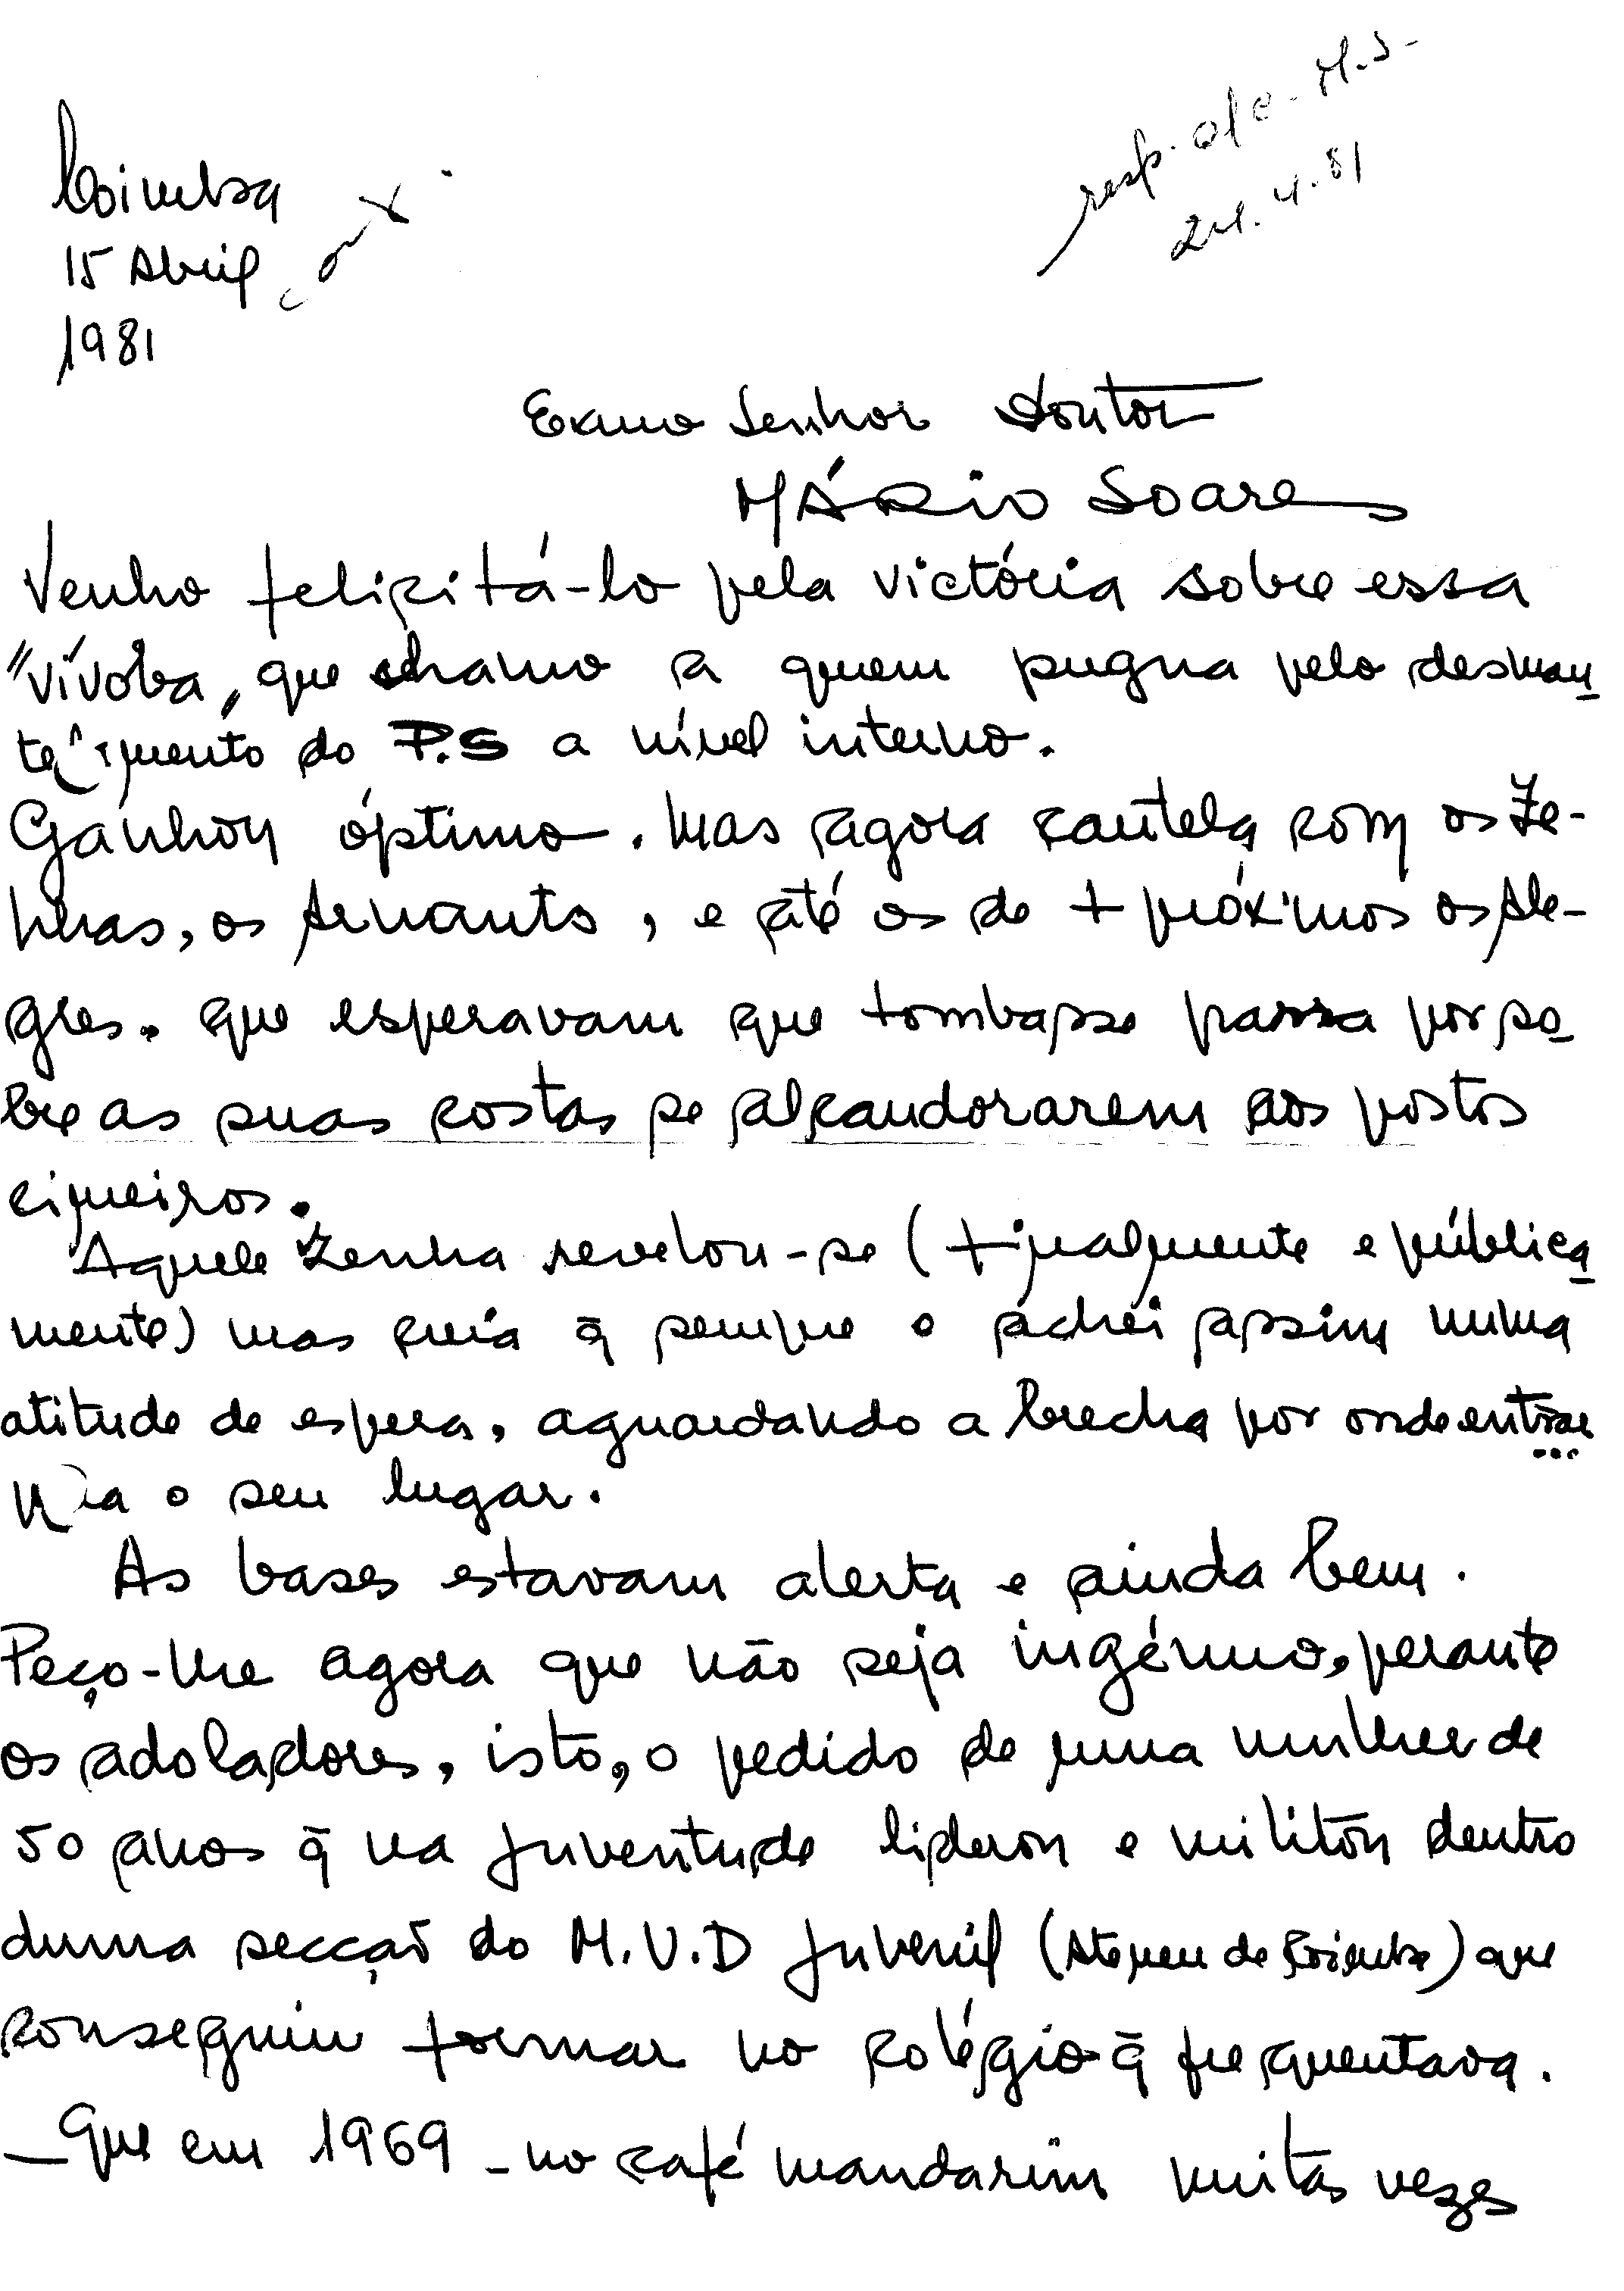 resp. of. c. M.S.
24.4.81
Coimbra
15 Abril
1981
Exmo Senhor Doutor
MÁRIO Soares
Venho felicitá-lo pela victória sobre essa
"vívora", que chamo a quem pugna pelo desman
telamento do P.S a nível interno.
Ganhou óptimo. Mas agora cautela com os Ze-
nhas, os Arnauts, e até os de + próximos os Ale-
gres. que esperavam que tombasse para por so
bre as suas costas se alcandorarem aos postos
cimeiros.
Aquele Zenha revelou-se (+ realmente e pública
mente) mas creia q̃ sempre o achei assim numa
atitude de espera, aguardando a brecha por onde entrar
ia o seu lugar.
As bases estavam alerta e ainda bem.
Peço-lhe agora que não seja ingénuo, perante
os adoladores, isto, o pedido de uma mulher de
50 anos q̃ na juventude liderou e militou dentro
duma secção do M.U.D Juvenil (Ateneu de Coimbra) que
conseguiu formar no colégio q̃ frequentava.
_ Que em 1969 - no café mandarim muitas vezes